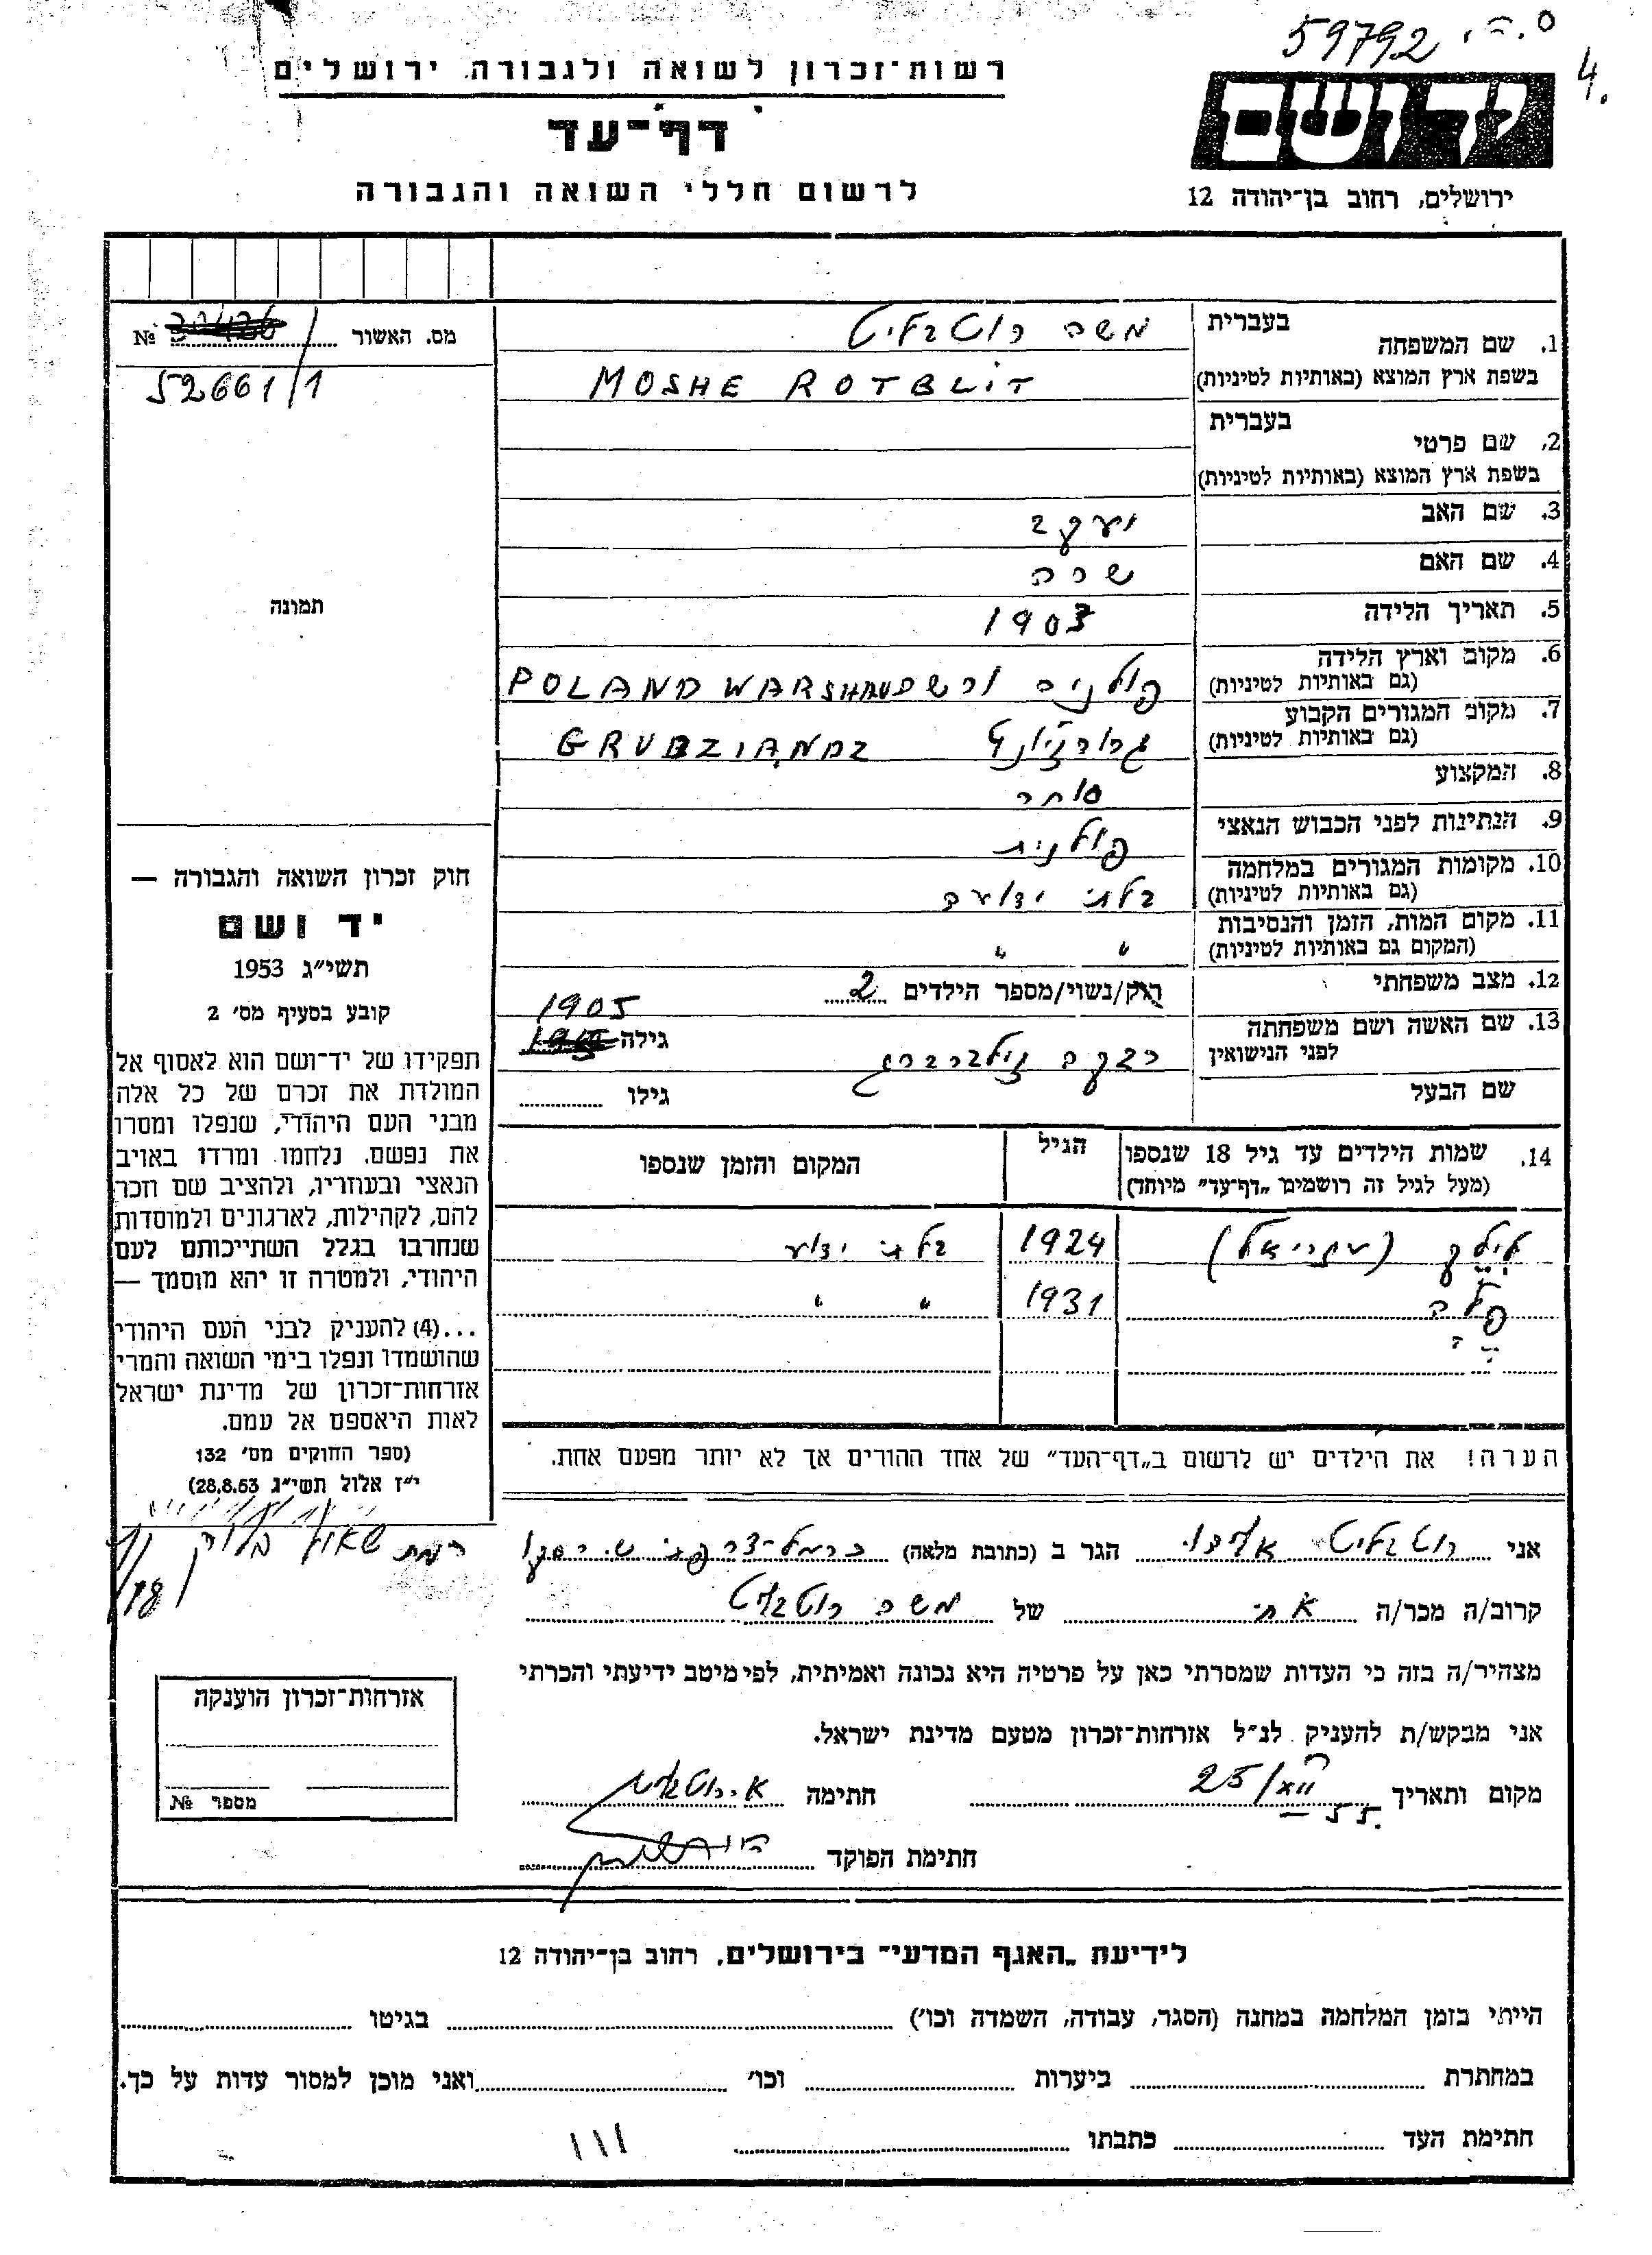 59792
4.
רשות־זכרון לשואה ולגבורה, ירושלים
יד ושם
דף־עד
לרשום חללי השואה והגבורה
ירושלים, רחוב בן־יהודה 12
מס. האשור №
52661/1
1. שם המשפחה
בעברית משה רוטבליט
בשפת ארץ המוצא (באותיות לטיניות) MOSHE ROTBLIT
2. שם פרטי
בעברית
בשפת ארץ המוצא (באותיות לטיניות)
3. שם האב יעקב
4. שם האם שרה
5. תאריך הלידה 1903
6. מקום וארץ הלידה
(גם באותיות לטיניות) פולניה POLAND
7. מקום המגורים הקבוע
(גם באותיות לטיניות) GRUBZIANDZ
8. המקצוע סוחר
9. הנתינות לפני הכבוש הנאצי פולנית
10. מקומות המגורים במלחמה
(גם באותיות לטיניות) בלתי ידועה
11. מקום המות, הזמן והנסיבות
(המקום גם באותיות לטיניות) " "
12. מצב משפחתי רוק/נשוי/מספר הילדים 2
13. שם האשה ושם משפחתה
לפני הנישואין רבקה זילברברג גילה 1905
שם הבעל גילו
14. שמות הילדים עד גיל 18 שנספו
(מעל לגיל זה רושמים "דף־עד" מיוחד)
הגיל
המקום והזמן שנספו
(עזריאל) 1924 בלתי ידוע
1931 " "
הערה! את הילדים יש לרשום ב"דף־העד" של אחד ההורים אך לא יותר מפעם אחת.
תמונה
חוק זכרון השואה והגבורה —
יד ושם
תשי״ג 1953
קובע בסעיף מס׳ 2
תפקידו של יד־ושם הוא לאסוף אל
המולדת את זכרם של כל אלה
מבני העם היהודי, שנפלו ומסרו
את נפשם, נלחמו ומרדו באויב
הנאצי ובעוזריו, ולהציב שם וזכר
להם, לקהילות, לארגונים ולמוסדות
שנחרבו בגלל השתייכותם לעם
היהודי, ולמטרה זו יהא מוסמך —
...(4) להעניק לבני העם היהודי
שהושמדו ונפלו בימי השואה והמרי
אזרחות־זכרון של מדינת ישראל
לאות היאספם אל עמם.
(ספר החוקים מס׳ 132
י״ז אלול תשי״ג 28.8.53)
אני רוטבליט הגר ב (כתובת מלאה)
קרוב/ה מכר/ה אח של משה רוטבליט
מצהיר/ה בזה כי העדות שמסרתי כאן על פרטיה היא נכונה ואמיתית, לפי מיטב ידיעתי והכרתי
אני מבקש/ת להעניק לנ״ל אזרחות־זכרון מטעם מדינת ישראל.
מקום ותאריך 25/XII 55. חתימה א. רוטבליט
חתימת הפוקד
אזרחות־זכרון הוענקה
מספר №
לידיעת "האגף המדעי" בירושלים, רחוב בן־יהודה 12
הייתי בזמן המלחמה במחנה (הסגר, עבודה, השמדה וכו׳) בגיטו
במחתרת ביערות וכו׳ ואני מוכן למסור עדות על כך.
חתימת העד כתבתו